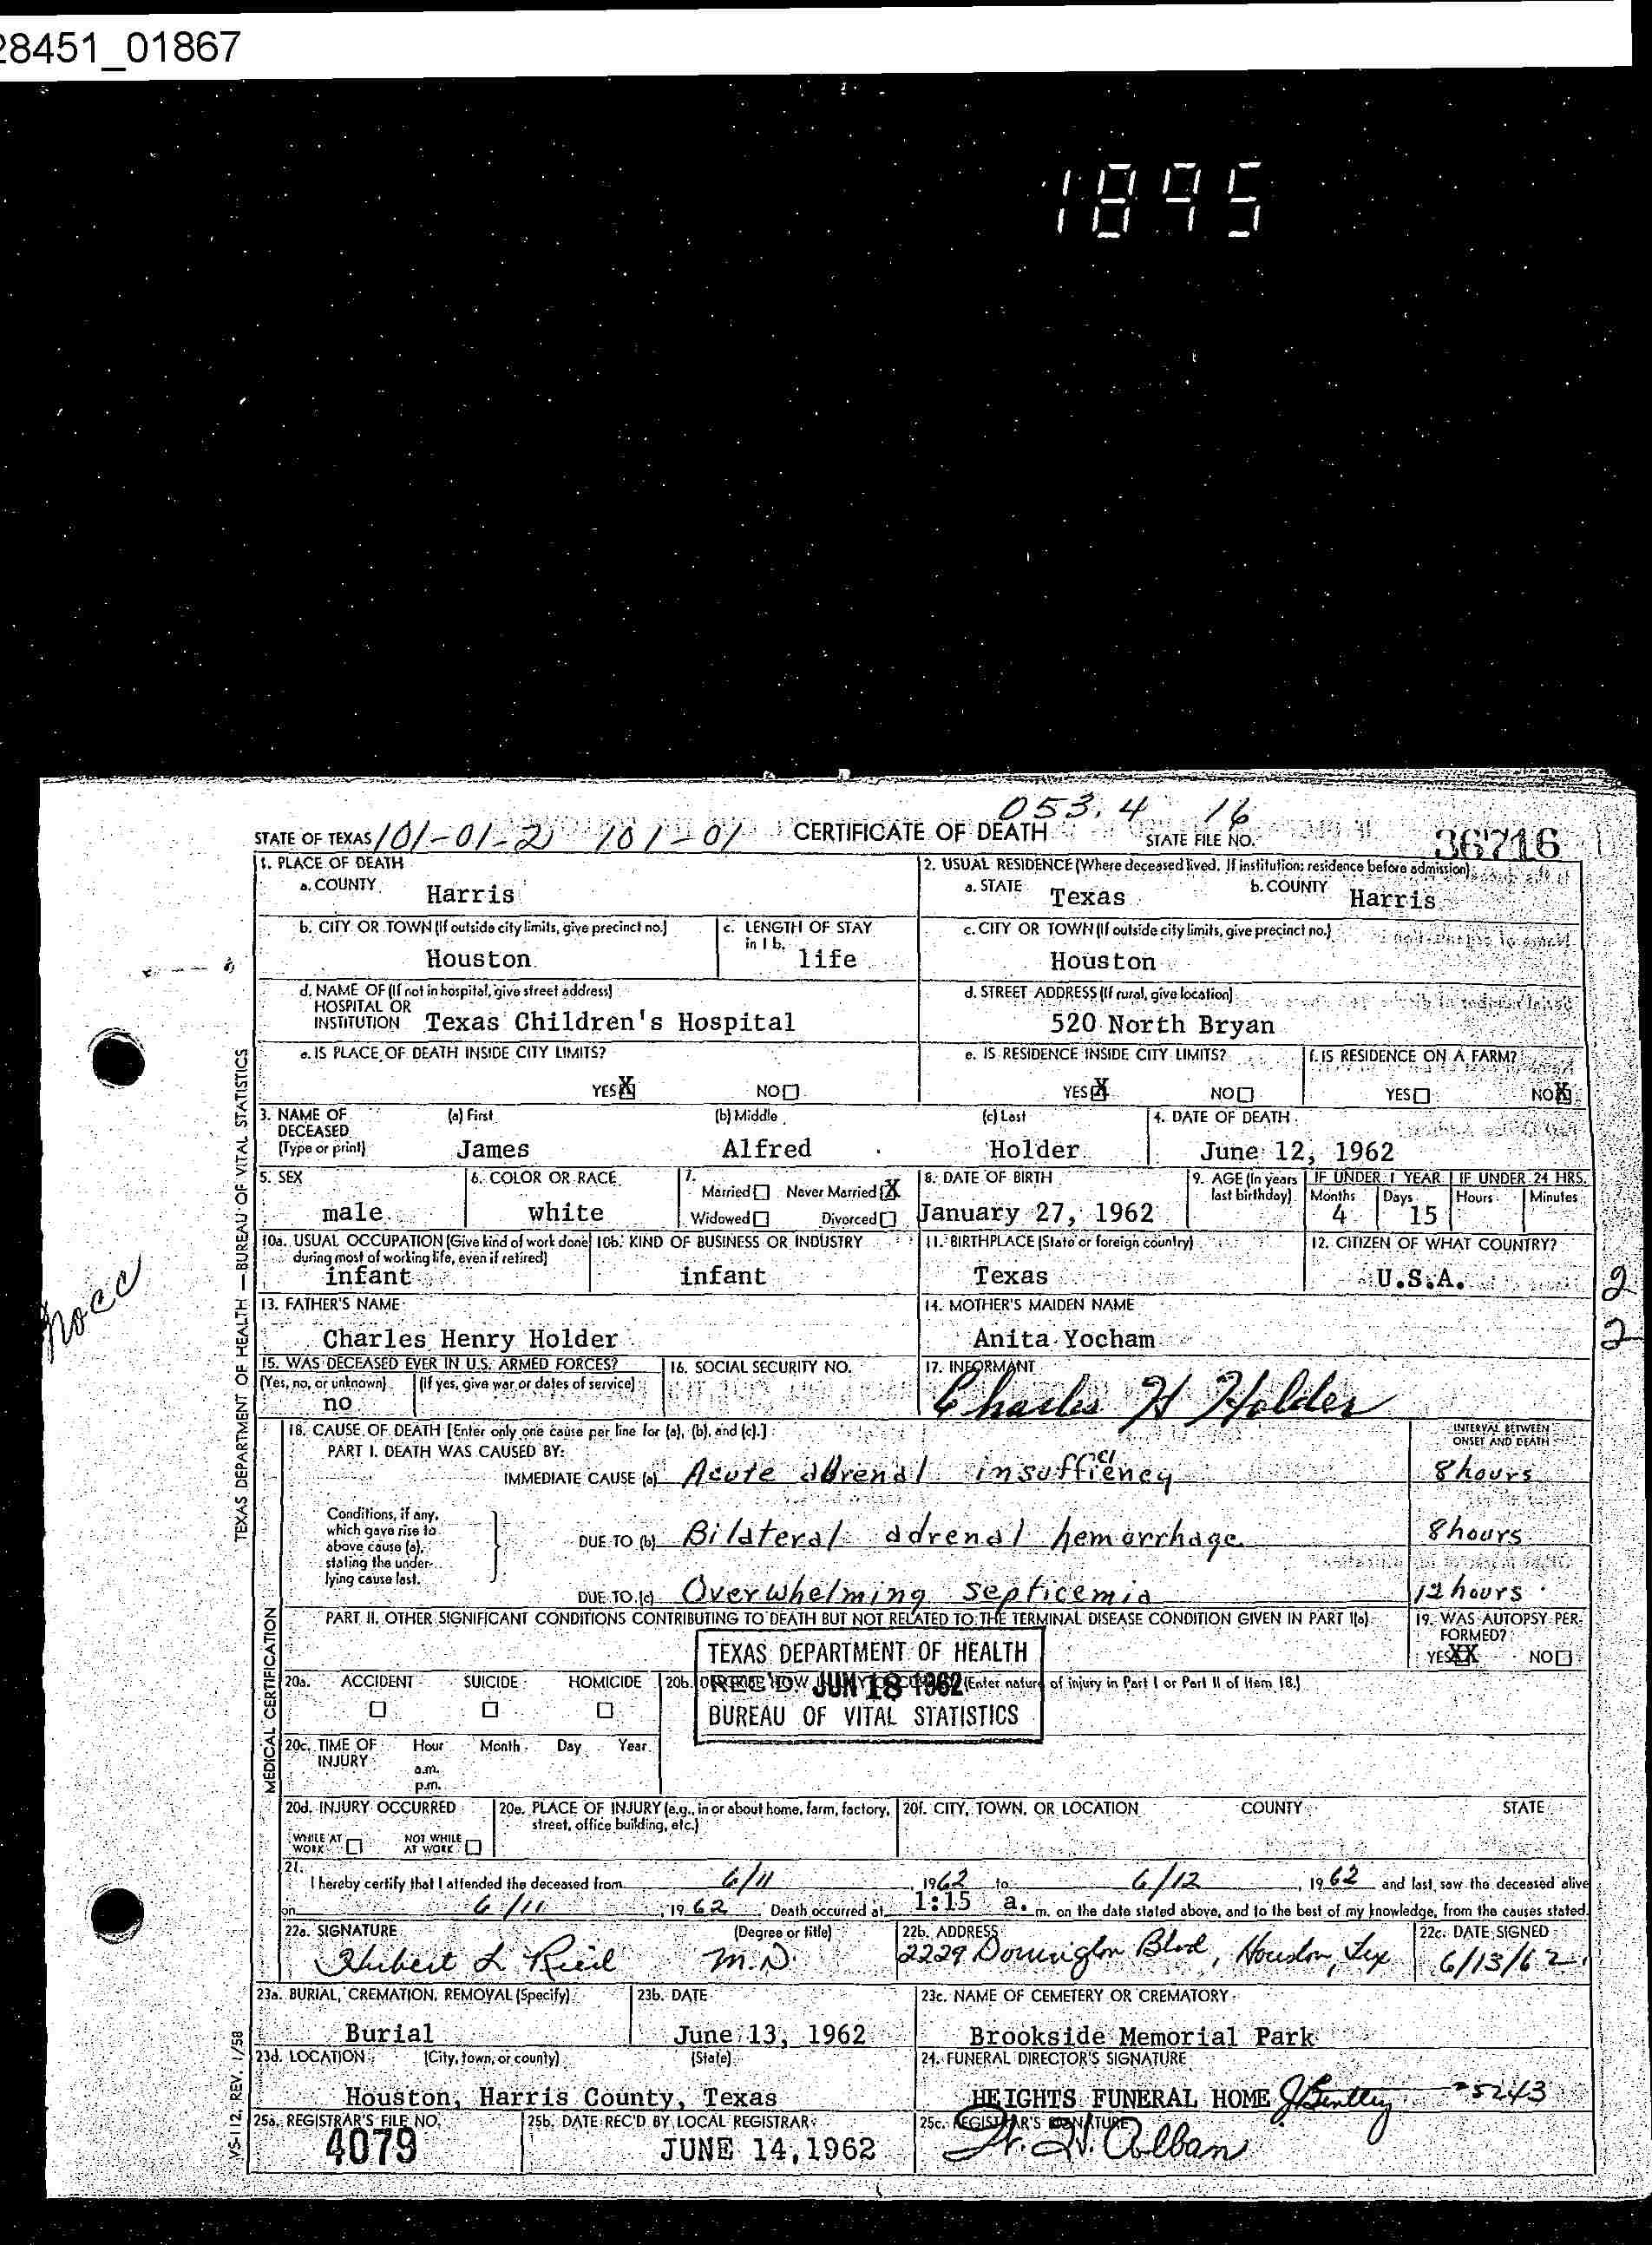 28451_01867
1895
053.4 16
STATE OF TEXAS 101-01-2 101-01 CERTIFICATE OF DEATH STATE FILE NO. 36716
1. PLACE OF DEATH
a. COUNTY Harris
2. USUAL RESIDENCE (Where deceased lived. If institution: residence before admission)
a. STATE Texas b. COUNTY Harris
b. CITY OR TOWN (If outside city limits, give precinct no.) Houston
c. LENGTH OF STAY in 1 b. life
c. CITY OR TOWN (If outside city limits, give precinct no.) Houston
d. NAME OF (If not in hospital, give street address)
HOSPITAL OR
INSTITUTION Texas Children's Hospital
d. STREET ADDRESS (If rural, give location)
520 North Bryan
e. IS PLACE OF DEATH INSIDE CITY LIMITS?
YES X NO
e. IS RESIDENCE INSIDE CITY LIMITS?
YES X NO
f. IS RESIDENCE ON A FARM?
YES NO X
3. NAME OF DECEASED (Type or print)
(a) First James
(b) Middle Alfred
(c) Last Holder
4. DATE OF DEATH June 12, 1962
5. SEX male
6. COLOR OR RACE white
7. Married Never Married X
Widowed Divorced
8. DATE OF BIRTH January 27, 1962
9. AGE (In years last birthday)
IF UNDER 1 YEAR Months 4 Days 15
IF UNDER 24 HRS. Hours Minutes
10a. USUAL OCCUPATION (Give kind of work done during most of working life, even if retired) infant
10b. KIND OF BUSINESS OR INDUSTRY infant
11. BIRTHPLACE (State or foreign country) Texas
12. CITIZEN OF WHAT COUNTRY? U.S.A.
13. FATHER'S NAME Charles Henry Holder
14. MOTHER'S MAIDEN NAME Anita Yocham
15. WAS DECEASED EVER IN U.S. ARMED FORCES?
(Yes, no, or unknown) (If yes, give war or dates of service)
no
16. SOCIAL SECURITY NO.
17. INFORMANT Charles H Holder
18. CAUSE OF DEATH [Enter only one cause per line for (a), (b), and (c).]
INTERVAL BETWEEN ONSET AND DEATH
PART I. DEATH WAS CAUSED BY:
IMMEDIATE CAUSE (a) Acute adrenal insufficiency 8 hours
Conditions, if any, which gave rise to above cause (a), stating the under-lying cause last.
DUE TO (b) Bilateral adrenal hemorrhage 8 hours
DUE TO (c) Overwhelming septicemia 12 hours
PART II. OTHER SIGNIFICANT CONDITIONS CONTRIBUTING TO DEATH BUT NOT RELATED TO THE TERMINAL DISEASE CONDITION GIVEN IN PART I(a)
19. WAS AUTOPSY PERFORMED?
YES XX NO
TEXAS DEPARTMENT OF HEALTH
REC'D. JUN 18 1962
BUREAU OF VITAL STATISTICS
20a. ACCIDENT SUICIDE HOMICIDE
20b. DESCRIBE HOW INJURY OCCURRED (Enter nature of injury in Part I or Part II of Item 18.)
20c. TIME OF INJURY Hour Month Day Year
a.m.
p.m.
20d. INJURY OCCURRED
WHILE AT WORK NOT WHILE AT WORK
20e. PLACE OF INJURY (e.g., in or about home, farm, factory, street, office building, etc.)
20f. CITY, TOWN, OR LOCATION COUNTY STATE
21.
I hereby certify that I attended the deceased from 6/11, 1962 to 6/12, 1962 and last saw the deceased alive
on 6/11, 1962 Death occurred at 1:15 a. m. on the date stated above, and to the best of my knowledge, from the causes stated.
22a. SIGNATURE (Degree or title) M.D.
22b. ADDRESS 2229 Blvd, Houston, Tex
22c. DATE SIGNED 6/13/62
23a. BURIAL, CREMATION, REMOVAL (Specify) Burial
23b. DATE June 13, 1962
23c. NAME OF CEMETERY OR CREMATORY Brookside Memorial Park
23d. LOCATION (City, town, or county) (State)
Houston, Harris County, Texas
24. FUNERAL DIRECTOR'S SIGNATURE
HEIGHTS FUNERAL HOME J Bentley 5243
25a. REGISTRAR'S FILE NO. 4079
25b. DATE REC'D BY LOCAL REGISTRAR JUNE 14, 1962
25c. REGISTRAR'S SIGNATURE
TEXAS DEPARTMENT OF HEALTH — BUREAU OF VITAL STATISTICS
MEDICAL CERTIFICATION
VS-112, REV. 1/58
2
2